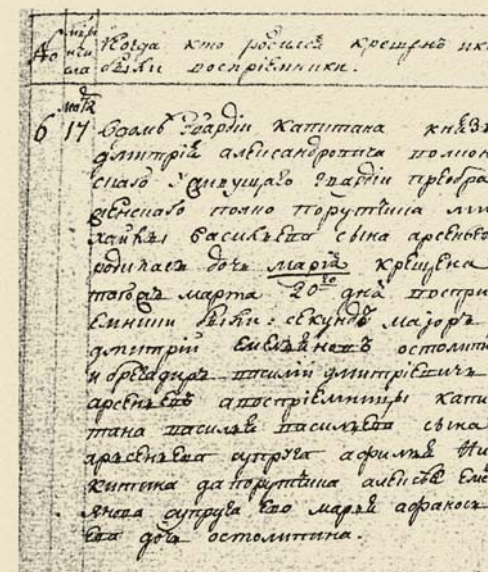 № мѣсяц числа Когда кто родился крещенъ и к
были восприемники.
марта
6 17 Вдомѣ Гвардіи капитана князя
дмитрія александровича
скаго живущаго гвардіи преобра
женскаго полко порутчика ми
хайлы васильева сына арсеньева
родилась дочь марія крещена
тогожъ марта 20го дня воспри
емники были: секундъ маіоръ
дмитрій емельяновъ остолопо
и брегадиръ василій дмитріевичъ
арсеньевъ а восприемницы капи
тана василья васильева сына
арсеньева супруга афимья Ни
китина да порутчика алексѣя еме
янова супруга его марья афонось
ева дочь